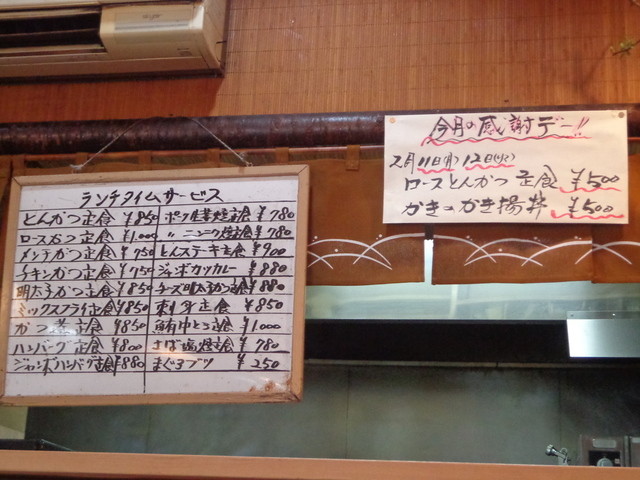 ランチタイムサービス
とんかつ定食 ¥850
ロースかつ定食 ¥1.000
メンチかつ定食 ¥750
チキンかつ定食 ¥750
明太子かつ定食 ¥850
ミックスフライ定食 ¥850
かつ煮定食 ¥850
ハンバーグ定食 ¥800
ジャンボハンバーグ定食 ¥880
ポーク生姜焼定食 ¥780
〃 ニンニク焼定食 ¥780
とんステーキ定食 ¥900
ジャンボカツカレー ¥880
チーズ明太子かつ定食 ¥880
刺身定食 ¥850
鮪中とろ定食 ¥1.000
さば塩焼定食 ¥780
まぐろブツ ¥250
今月の感謝デー!!
2月11日(月)12日(火)
ロースとんかつ定食 ¥500
かき・かき揚丼 ¥500